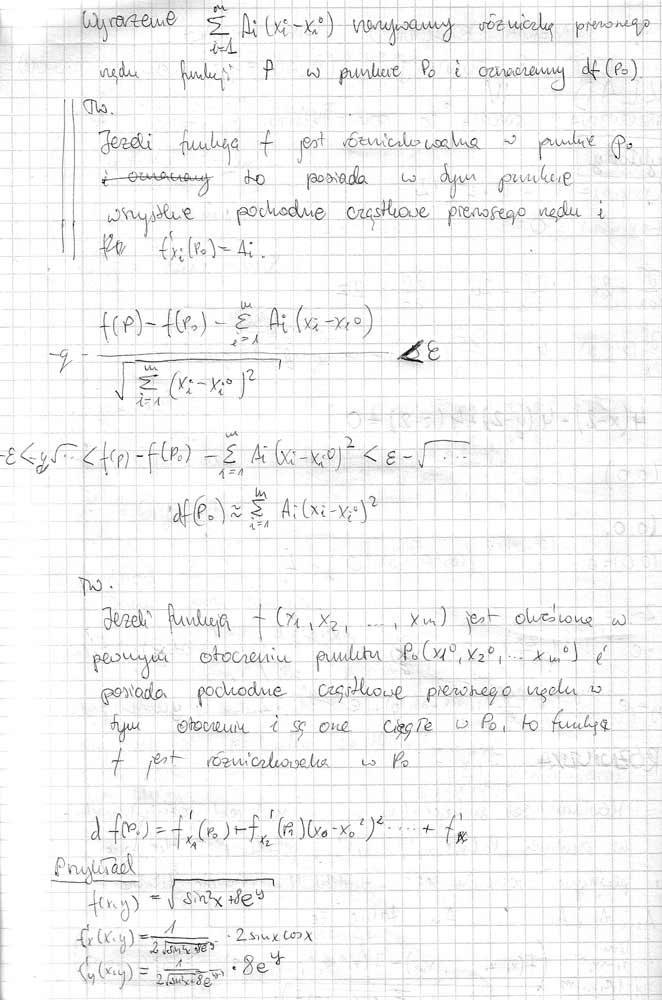 Wyrażenie \sum_{i=1}^{m} A_i (x_i - x_i^0) nazywamy różniczką pierwszego
rzędu funkcji f w punkcie P_0 i oznaczamy df(P_0)
Tw.
Jeżeli funkcja f jest różniczkowalna w punkcie P_0
i oznaczamy to posiada w tym punkcie
wszystkie pochodne cząstkowe pierwszego rzędu i
f'_{x_i}(P_0) = A_i.
\frac{f(P) - f(P_0) - \sum_{i=1}^{m} A_i (x_i - x_i^0)}{\sqrt{\sum_{i=1}^{m} (x_i - x_i^0)^2}} < ε
< f(P) - f(P_0) - \sum_{i=1}^{m} A_i (x_i - x_i^0)^2 < ε - \sqrt{...}
df(P_0) ≈ \sum_{i=1}^{m} A_i (x_i - x_i^0)^2
Tw.
Jeżeli funkcja f(x_1, x_2, ..., x_m) jest określona w
pewnym otoczeniu punktu P_0(x_1^0, x_2^0, ... x_m^0) i
posiada pochodne cząstkowe pierwszego rzędu w
tym otoczeniu i są one ciągłe w P_0, to funkcja
f jest różniczkowalna w P_0
d f(P_0) = f'_{x_1}(P_0) + f'_{x_2}(P_1)(x_0 - x_0^2)^2 .... + f'_x
Przykład
f(x,y) = \sqrt{sin^2 x + 8e^y}
f'_x(x,y) = \frac{1}{2\sqrt{sin^2 x + 8e^y}} · 2 sin x cos x
f'_y(x,y) = \frac{1}{2\sqrt{sin^2 x + 8e^y}} · 8e^y